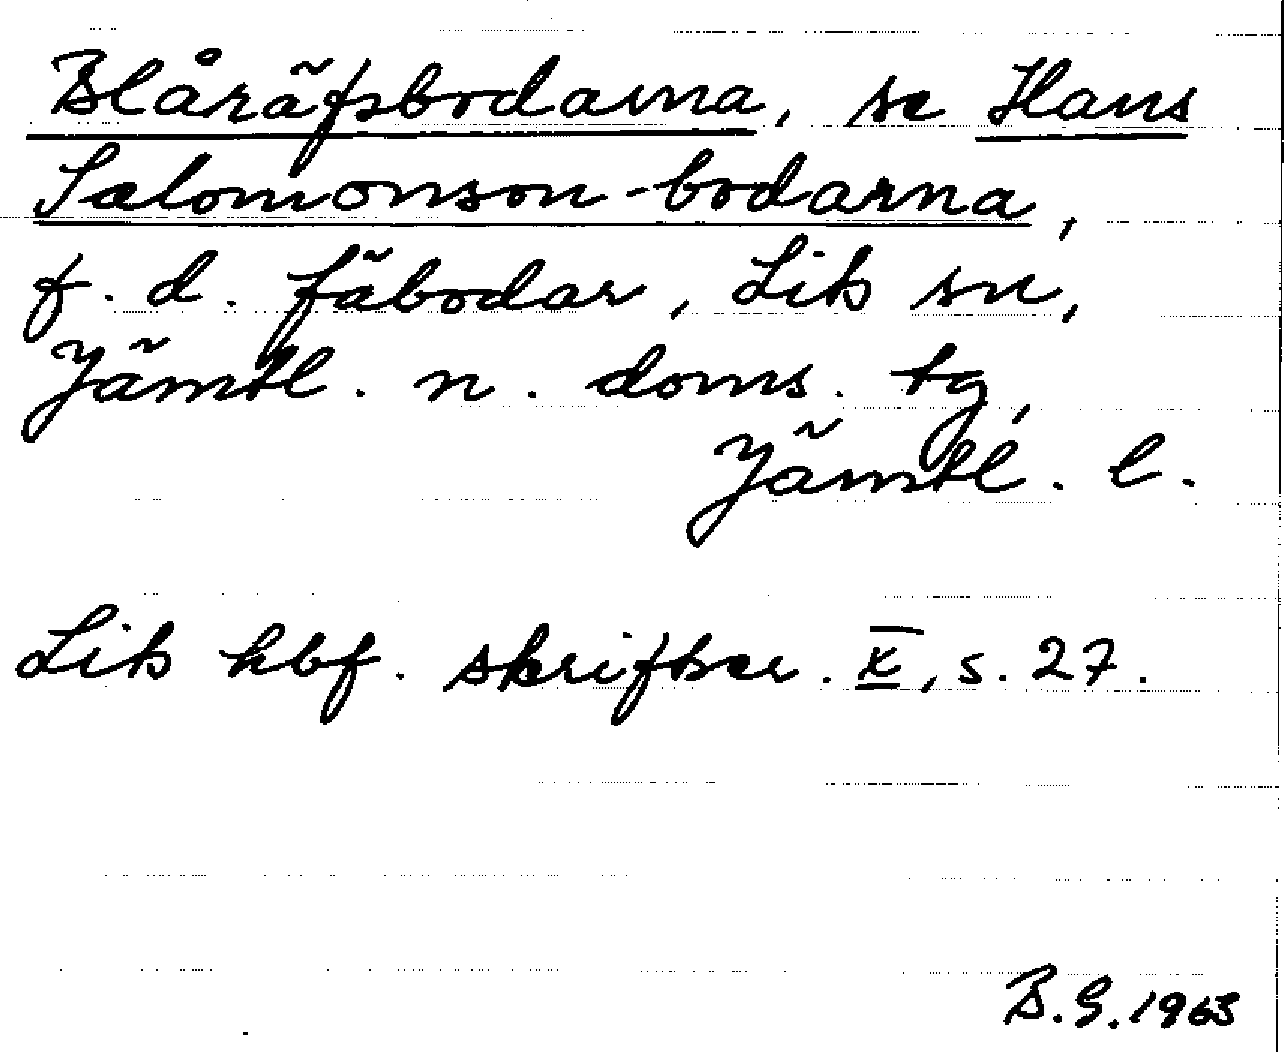 Blåräfsbodarna, se Hans
Salomonson-bodarna,
f.d. fäbodar, Lits sn,
Jämtl. n. doms. tg,
Jämtl. l.
Lits hbf. skrifter. X, s. 27.
B.G. 1963